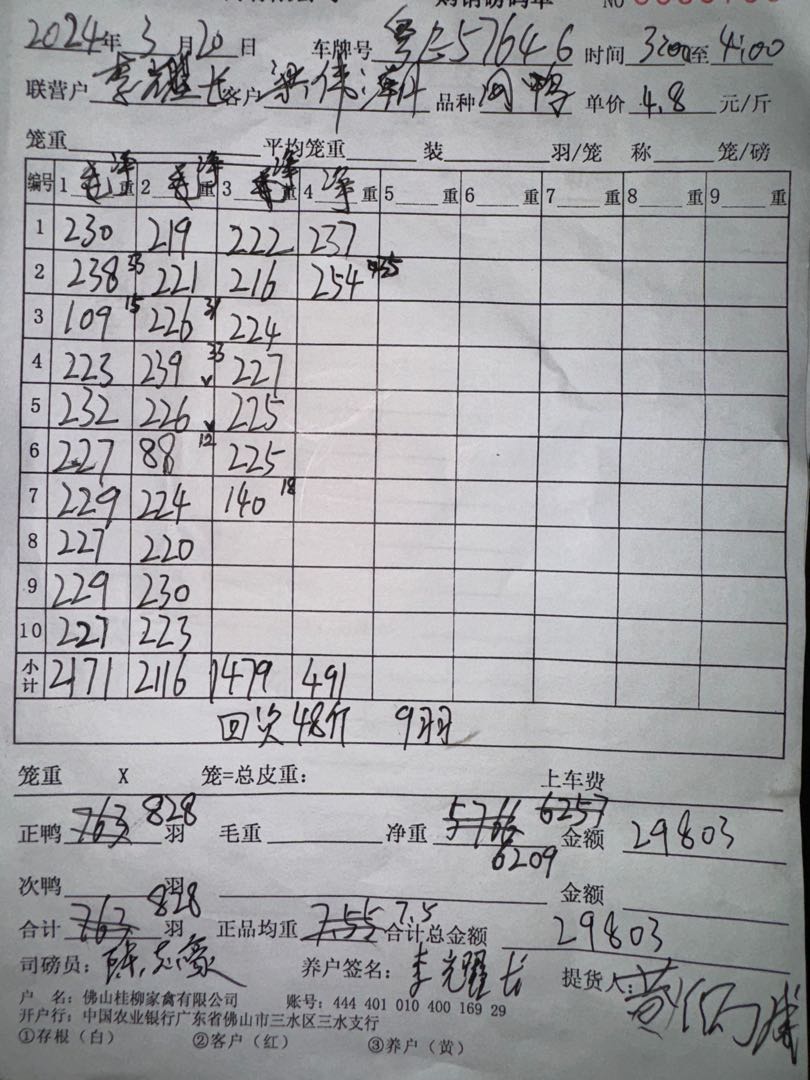 购销磅码单 NO
2024年3月20日 车牌号 粤E57646 时间 3:00至4:00
联营户 李耀长 客户 梁伟 品种 肉鸭 单价 4.8 元/斤
笼重 平均笼重 装 羽/笼 称 笼/磅
编号 1 净重 2 净重 3 净重 4 净重 5 重 6 重 7 重 8 重 9 重
1 230 219 222 237
2 238 33 221 216 254 435
3 109 15 226 31 224
4 223 239 33 227
5 232 226 225
6 227 88 12 225
7 229 224 140 18
8 227 220
9 229 230
10 227 223
小计 2171 2116 1479 491
回次48斤 9羽
笼重 X 笼=总皮重: 上车费
正鸭 763 828 羽 毛重 净重 5766 6257 6209 金额 29803
次鸭 羽 金额
合计 763 828 羽 正品均重 7.55 7.5 合计总金额 29803
司磅员: 陈志豪 养户签名: 李耀长 提货人:
户 名: 佛山桂柳家禽有限公司 账号: 444 401 010 400 169 29
开户行: 中国农业银行广东省佛山市三水区三水支行
①存根(白) ②客户(红) ③养户(黄)